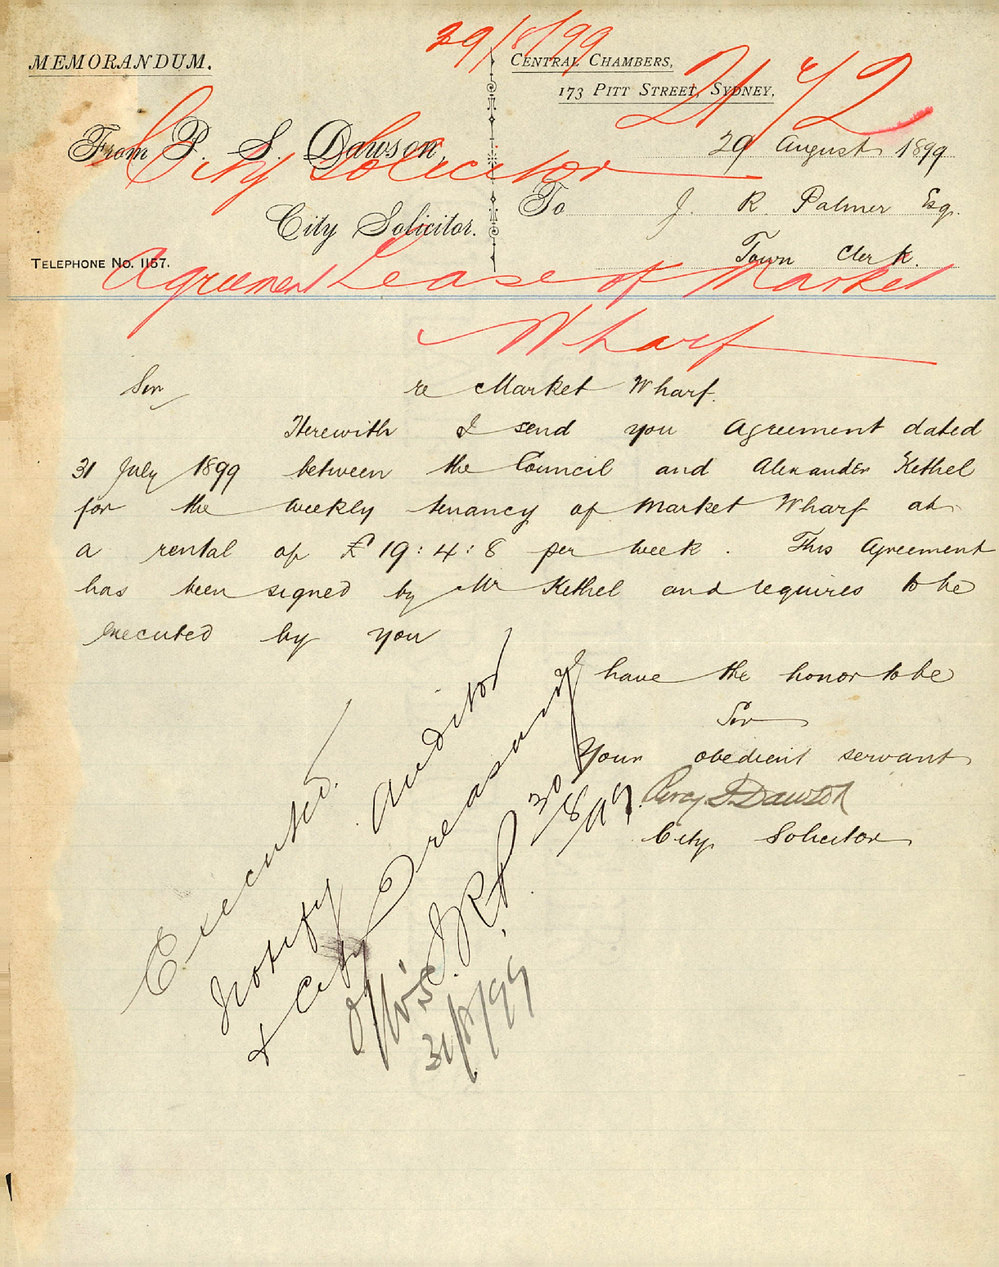 29/8/99
MEMORANDUM.
CENTRAL CHAMBERS,
173 PITT STREET, SYDNEY,
2142
From P. S. Dawson,
29 August 1899
City Solicitor
To J. R. Palmer Esq.
City Solicitor.
Town Clerk.
TELEPHONE No. 1157.
Agreement Lease of Market
Wharf
Sir
re Market Wharf.
Herewith I send you Agreement dated
31 July 1899 between the Council and Alexander Kethel
for the weekly tenancy of Market Wharf at
a rental of £19:4:8 per week. This Agreement
has been signed by Mr Kethel and requires to be
executed by you
I have the honor to be
Sir
Your obedient servant
Percy S. Dawson
City Solicitor
Executed.
Notify Auditor
& City Treasurer
J.R.P. 30/8/99
31/8/99